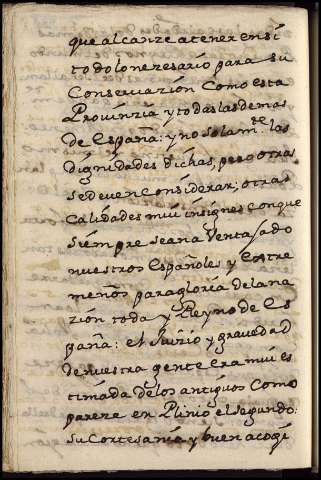 que alcanze a tener en sí
todo lo nezesario para su
Conservazión Como esta
Provinzia y todas las demas
de España: y no solam.te las
dígnidades díchas, pero otras
se deven Considerar; otras
Calidades muí insígnes con que
siempre se an a Ventajado
nuestros Españoles y Estre
meños para gloría de la na
zión toda y Reyno de Es
paña: el Juizio y gravedad
de nuestra gente era muí es
timada de los antiguos Como
pareze en Plinio el segundo:
su Cortesanía y buen acogi